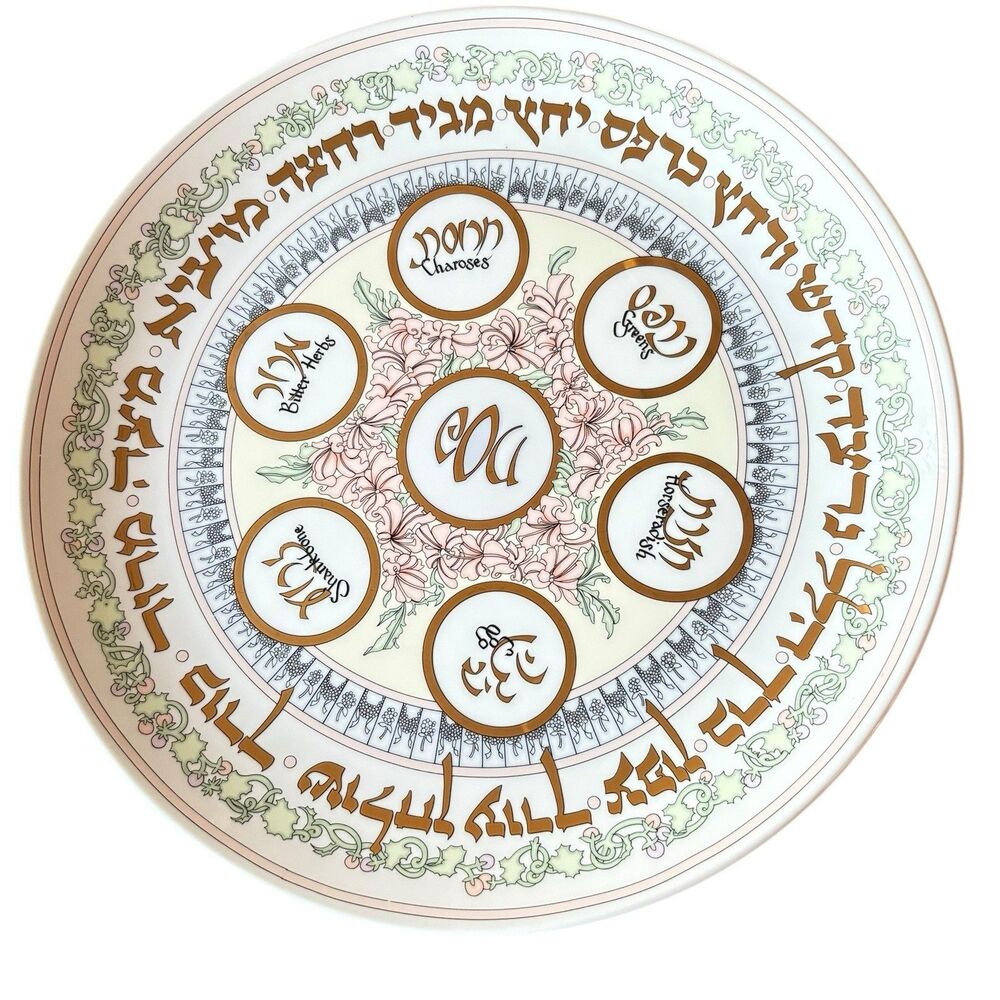 קדש · ורחץ · כרפס · יחץ · מגיד · רחצה · מוציא · מצה · מרור · כורך · שולחן עורך · צפון · ברך · הלל · נרצה ·
חרוסת
Charoses
כרפס
Greens
חזרת
Horseradish
ביצה
Egg
זרוע
Shankbone
מרור
Bitter Herbs
פסח